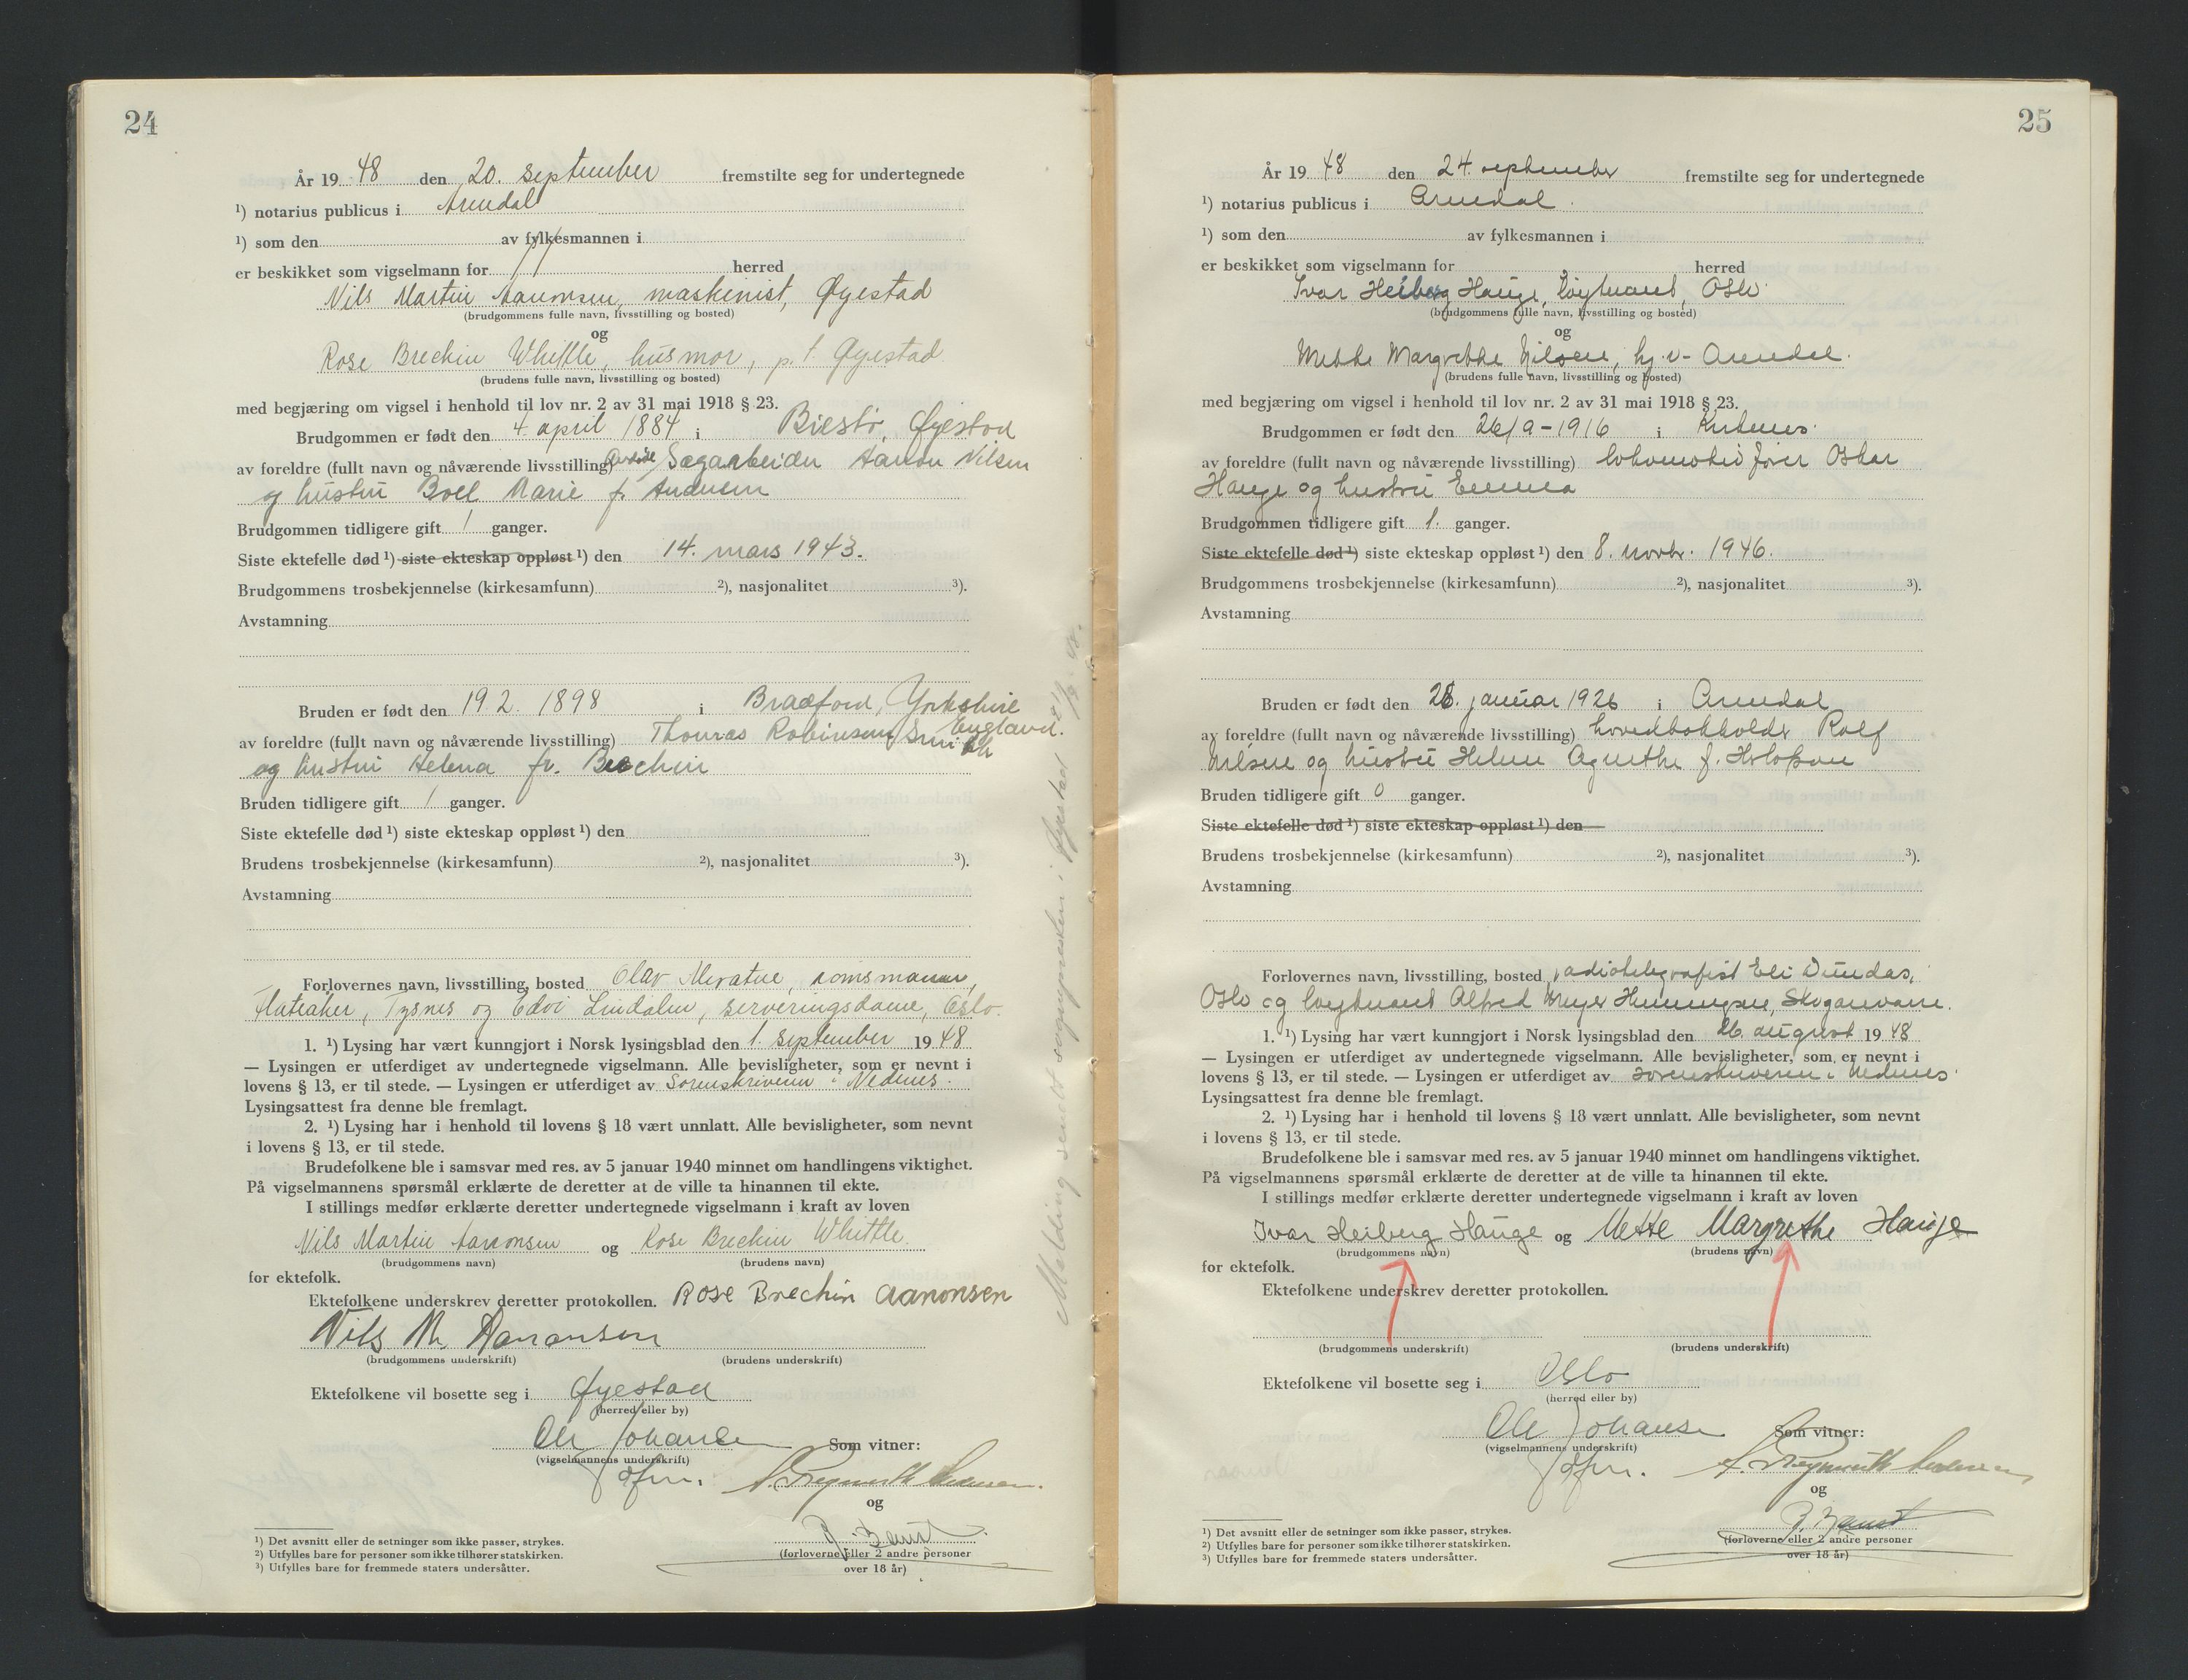 24
År 19 48 den 20. september fremstilte seg for undertegnede
¹) notarius publicus i Arendal
¹) som den av fylkesmannen i
er beskikket som vigselmann for herred
Nils Martin Aanonsen, maskinist, Øyestad
(brudgommens fulle navn, livsstilling og bosted)
og
Rose Brechin Whittle, husmor, p.t. Øyestad
(brudens fulle navn, livsstilling og bosted)
med begjæring om vigsel i henhold til lov nr. 2 av 31 mai 1918 § 23.
Brudgommen er født den 4. april 1884 i Øyestad
av foreldre (fullt navn og nåværende livsstilling) Sagarbeider Aanon Nilsen
og hustru Boel Marie f. Andersen
Brudgommen tidligere gift 1 ganger.
Siste ektefelle død ¹) siste ekteskap oppløst ¹) den 14. mars 1943.
Brudgommens trosbekjennelse (kirkesamfunn) ²), nasjonalitet ³).
Avstamning
Bruden er født den 19.2. 1898 i Bradford, Yorkshire
England.
av foreldre (fullt navn og nåværende livsstilling) Thomas Robinson Smith
og hustru Helena f. Brechin
Bruden tidligere gift 1 ganger.
Siste ektefelle død ¹) siste ekteskap oppløst ¹) den
Brudens trosbekjennelse (kirkesamfunn) ²), nasjonalitet ³).
Avstamning
Forlovernes navn, livsstilling, bosted Olav
Flateåker, Tysnes og Edvi Lindalen, serveringsdame, Oslo.
1. ¹) Lysing har vært kunngjort i Norsk lysingsblad den 1. september 19 48
— Lysingen er utferdiget av undertegnede vigselmann. Alle bevisligheter, som er nevnt i
lovens § 13, er til stede. — Lysingen er utferdiget av Sorenskriveren i Nedenes.
Lysingsattest fra denne ble fremlagt.
2. ¹) Lysing har i henhold til lovens § 18 vært unnlatt. Alle bevisligheter, som nevnt
i lovens § 13, er til stede.
Brudefolkene ble i samsvar med res. av 5 januar 1940 minnet om handlingens viktighet.
På vigselmannens spørsmål erklærte de deretter at de ville ta hinannen til ekte.
I stillings medfør erklærte deretter undertegnede vigselmann i kraft av loven
Nils Martin Aanonsen og Rose Brechin Whittle.
(brudgommens navn) (brudens navn)
for ektefolk.
Ektefolkene underskrev deretter protokollen. Rose Brechin Aanonsen
Nils M. Aanonsen
(brudgommens underskrift) (brudens underskrift)
Ektefolkene vil bosette seg i Øyestad
(herred eller by)
Ole Johansen Som vitner:
(vigselmannens underskrift)
og
(forloverne eller 2 andre personer
over 18 år)
¹) Det avsnitt eller de setninger som ikke passer, strykes.
²) Utfylles bare for personer som ikke tilhører statskirken.
³) Utfylles bare for fremmede staters undersåtter.
Melding sendt sognepresten i Øyestad
25
År 19 48 den 24. september fremstilte seg for undertegnede
¹) notarius publicus i Arendal.
¹) som den av fylkesmannen i
er beskikket som vigselmann for herred
Ivar Heiberg Hauge, løytnant, Oslo.
(brudgommens fulle navn, livsstilling og bosted)
og
Mette Margrethe Nilsen, hj.v. Arendal.
(brudens fulle navn, livsstilling og bosted)
med begjæring om vigsel i henhold til lov nr. 2 av 31 mai 1918 § 23.
Brudgommen er født den 26/9-1916 i
av foreldre (fullt navn og nåværende livsstilling) lokomotivfører Oskar
Hauge og hustru Emma
Brudgommen tidligere gift 1. ganger.
Siste ektefelle død ¹) siste ekteskap oppløst ¹) den 8. novbr. 1946.
Brudgommens trosbekjennelse (kirkesamfunn) ²), nasjonalitet ³).
Avstamning
Bruden er født den 28. januar 1926 i Arendal
av foreldre (fullt navn og nåværende livsstilling) hovedbokholder Rolf
Nilsen og hustru Helene Agnethe f.
Bruden tidligere gift 0 ganger.
Siste ektefelle død ¹) siste ekteskap oppløst ¹) den
Brudens trosbekjennelse (kirkesamfunn) ²), nasjonalitet ³).
Avstamning
Forlovernes navn, livsstilling, bosted radiotelegrafist Eli Dundas,
Oslo og løytnant Alfred Meyer Henningsen, Skoganvarre.
1. ¹) Lysing har vært kunngjort i Norsk lysingsblad den 26. august 19 48
— Lysingen er utferdiget av undertegnede vigselmann. Alle bevisligheter, som er nevnt i
lovens § 13, er til stede. — Lysingen er utferdiget av sorenskriveren i Nedenes
Lysingsattest fra denne ble fremlagt.
2. ¹) Lysing har i henhold til lovens § 18 vært unnlatt. Alle bevisligheter, som nevnt
i lovens § 13, er til stede.
Brudefolkene ble i samsvar med res. av 5 januar 1940 minnet om handlingens viktighet.
På vigselmannens spørsmål erklærte de deretter at de ville ta hinannen til ekte.
I stillings medfør erklærte deretter undertegnede vigselmann i kraft av loven
Ivar Heiberg Hauge og Mette Margrethe Hauge
(brudgommens navn) (brudens navn)
for ektefolk.
Ektefolkene underskrev deretter protokollen.
(brudgommens underskrift) (brudens underskrift)
Ektefolkene vil bosette seg i Oslo
(herred eller by)
Ole Johansen Som vitner:
(vigselmannens underskrift)
og
(forloverne eller 2 andre personer
over 18 år)
¹) Det avsnitt eller de setninger som ikke passer, strykes.
²) Utfylles bare for personer som ikke tilhører statskirken.
³) Utfylles bare for fremmede staters undersåtter.